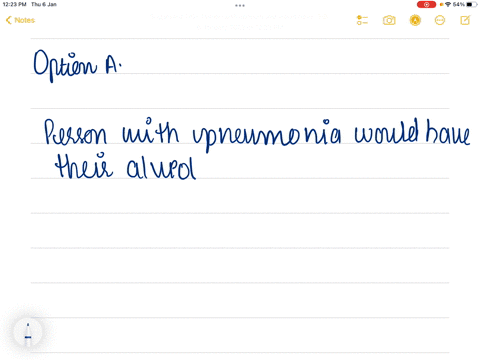 12:23 PM Thu 6 Jan
54%
Notes
Option A.
Person with pneumonia would have
their alveol